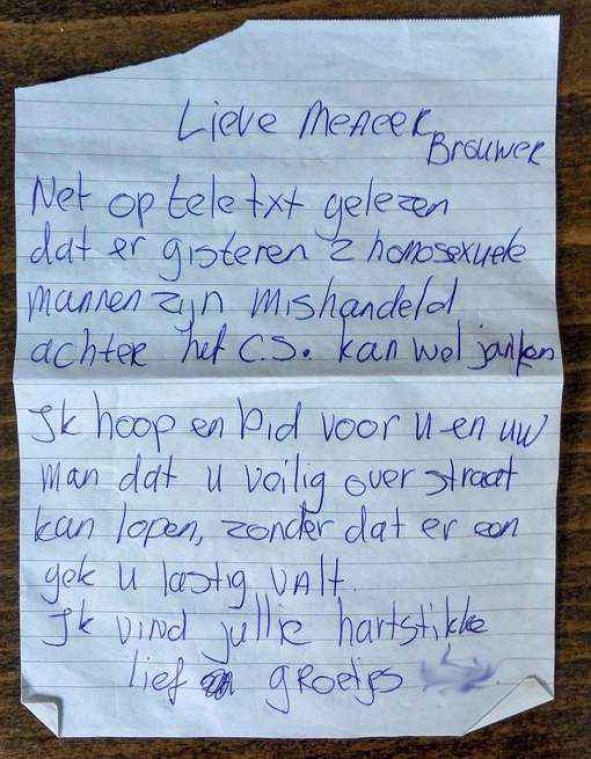 Lieve Meneer
Brouwer
Net op tele txt gelezen
dat er gisteren 2 homosexuele
mannen zijn mishandeld
achter het C.S. kan wel janken
Ik hoop en bid voor u en uw
man dat u veilig over straat
kan lopen, zonder dat er een
gek u lastig valt.
Ik vind jullie hartstikke
lief groetjes